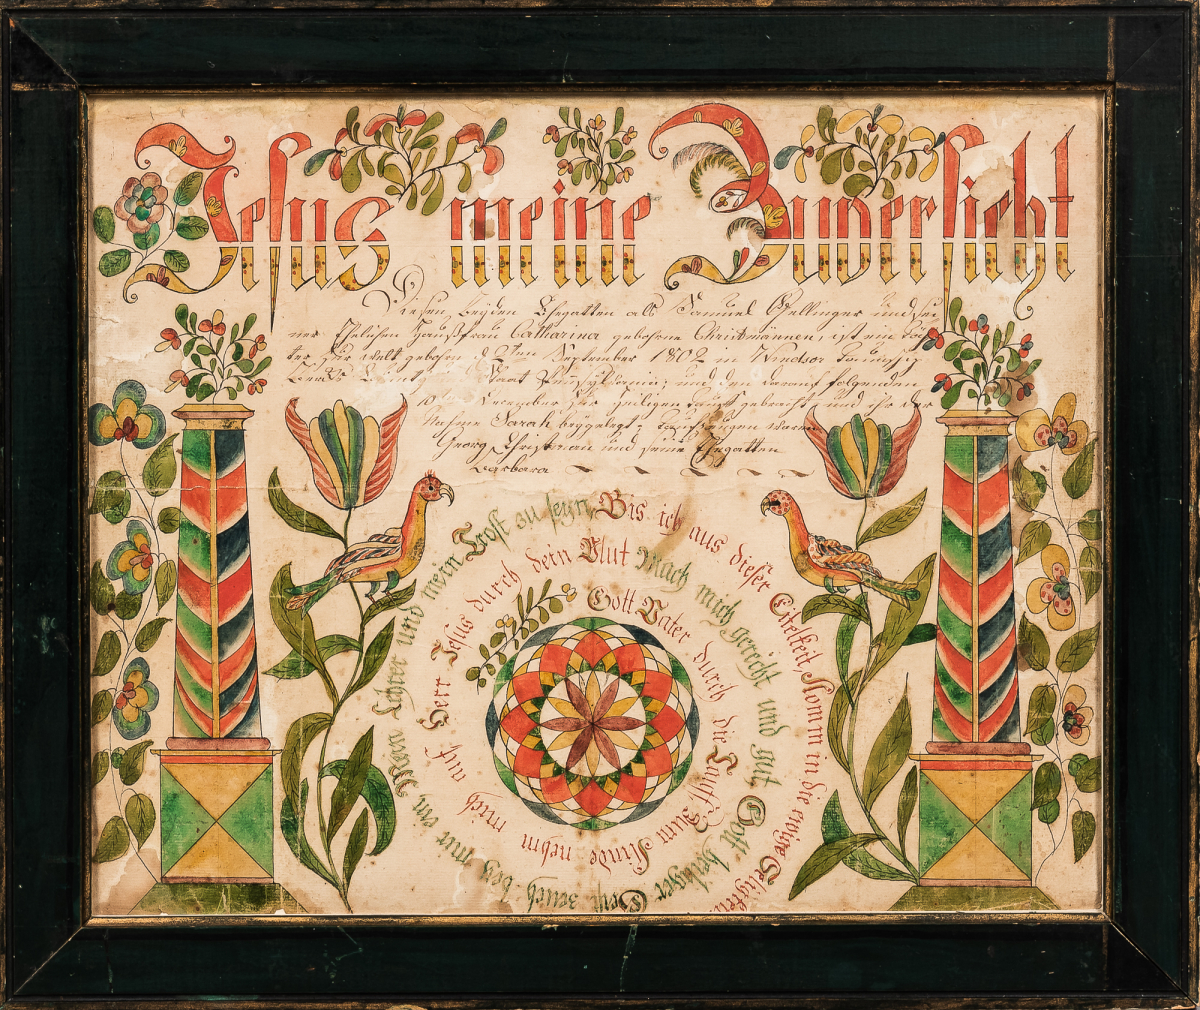 Jesus meine Zuversicht
Diesen beyden Ehegatten als Samuel Gellinger und sei
ner Ehelichen Haußfrau Catharina gebohrne Christmännen, ist ein Toch
ter, zur Welt gebohrn d. 2ten September 1802 in Windsor Taunschip
Berks Caunty Staat Pensylvania; und den darauf folgenden
10 December zur heiligen Tauff gebracht und ihr der
Nahme Sarah beygelegt; Taufzeugen waren
Georg Christman und seine Ehegatten
Barbara
Gott Vater durch die Tauff Zum Kinde nehm mich auf Herr Jesus durch dein Blut Mach mich gerecht und gut Gott heiliger Geist zeuch bey mir ein, Mein Lehrer und mein Trost zu seyn, Bis ich aus dieser Eitelkeit, Komm in die ewige Seligkeit